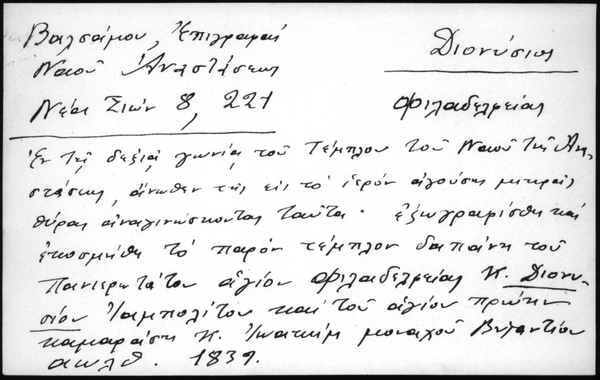 Βαλσάμου, Ἐπιγραφαὶ
Ναοῦ Ἀναστάσεως
Νέα Σιών 8, 221
Διονύσιος
Φιλαδελφείας
Ἐν τῇ δεξιᾷ γωνίᾳ τοῦ Τέμπλου τοῦ Ναοῦ τῆς Ἀνα-
στάσεως, ἄνωθεν τῆς εἰς τὸ ἱερὸν ἀγούσης μικρᾶς
θύρας ἀναγινώσκονται ταῦτα· ἐζωγραφίσθη καὶ
ἐκοσμήθη τὸ παρὸν τέμπλον δαπάνῃ τοῦ
Πανιερωτάτου ἁγίου Φιλαδελφείας Κ. Διονυ-
σίου Σταμπολίτου καὶ τοῦ ἁγίου πρώην
καμαράση Κ. Ἰωακεὶμ μοναχοῦ Βυζαντίου
αωλθ. 1839.